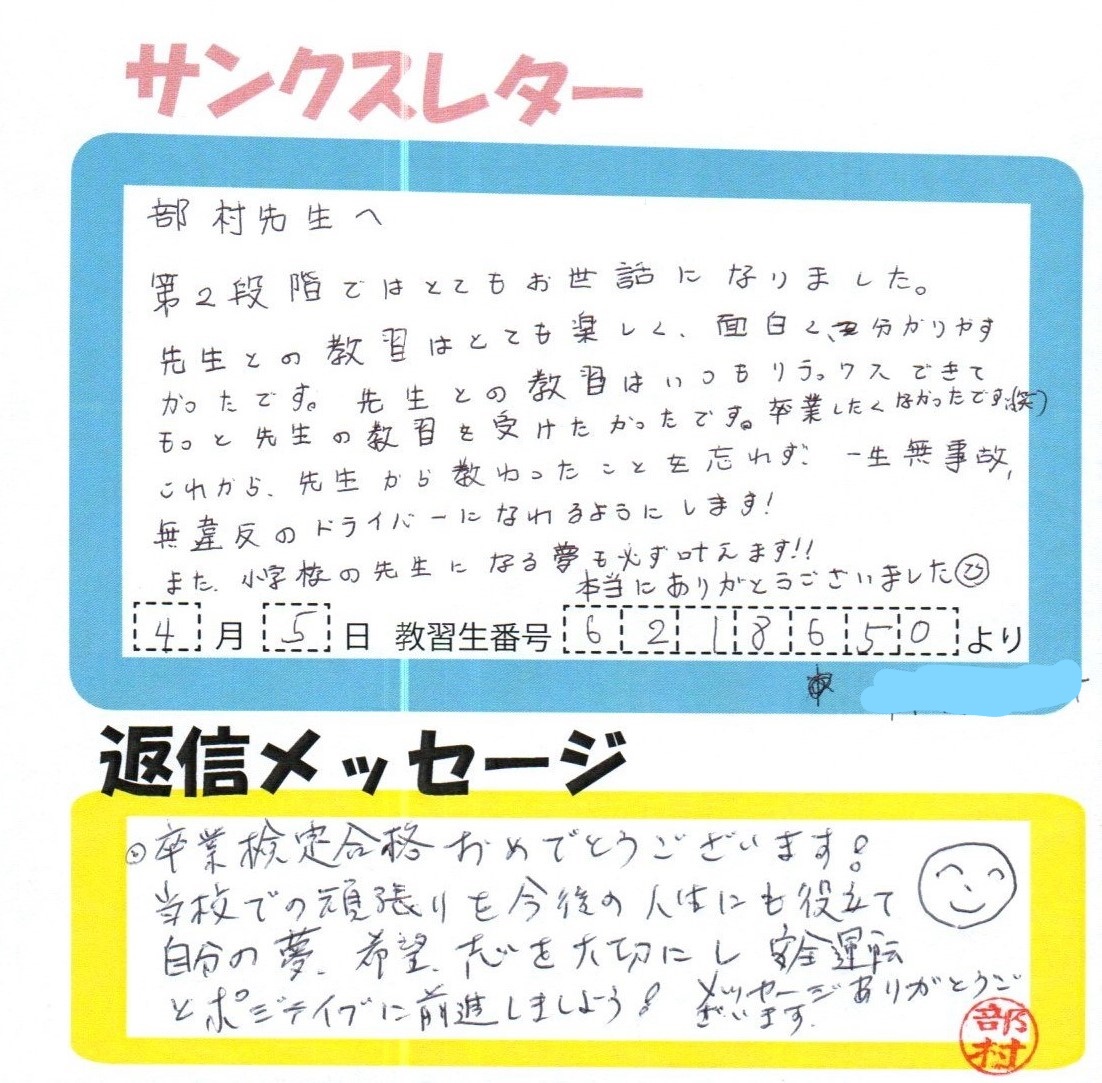 サンクスレター
部村先生へ
第2段階ではとてもお世話になりました。
先生との教習はとても楽しく、面白く、分かりやす
かったです。先生との教習はいつもリラックスできて
もっと先生の教習を受けたかったです。卒業したくなかったです(笑)
これから、先生から教わったことを忘れず、一生無事故、
無違反のドライバーになれるようにします!
また、小学校の先生になる夢も必ず叶えます!!
本当にありがとうございました
4月5日 教習生番号 6218650より
返信メッセージ
卒業検定合格おめでとうございます!
当校での頑張りを今後の人生にも役立て
自分の夢、希望、志を大切にし安全運転
とポジティブに前進しましょう!
メッセージありがとうご
ざいます.
部村